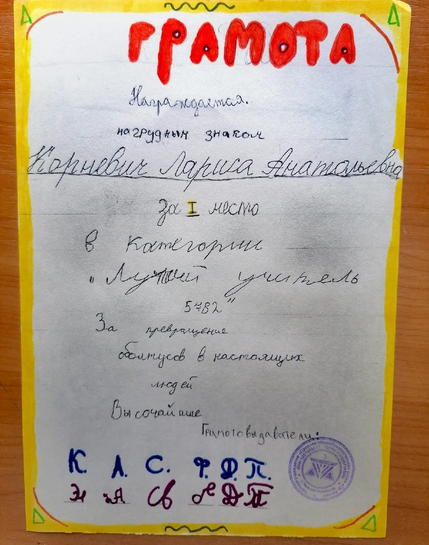 ГРАМОТА
Награждается.
нагрудным знаком
Корневич Лариса Анатольевна
За I место
в категории
"Лутший учитель
5782"
За превращение
оболтусов в настоящих
людей
Высочайшие
Грамотовыдаватели:
К. А. С. Ф. Д. П.